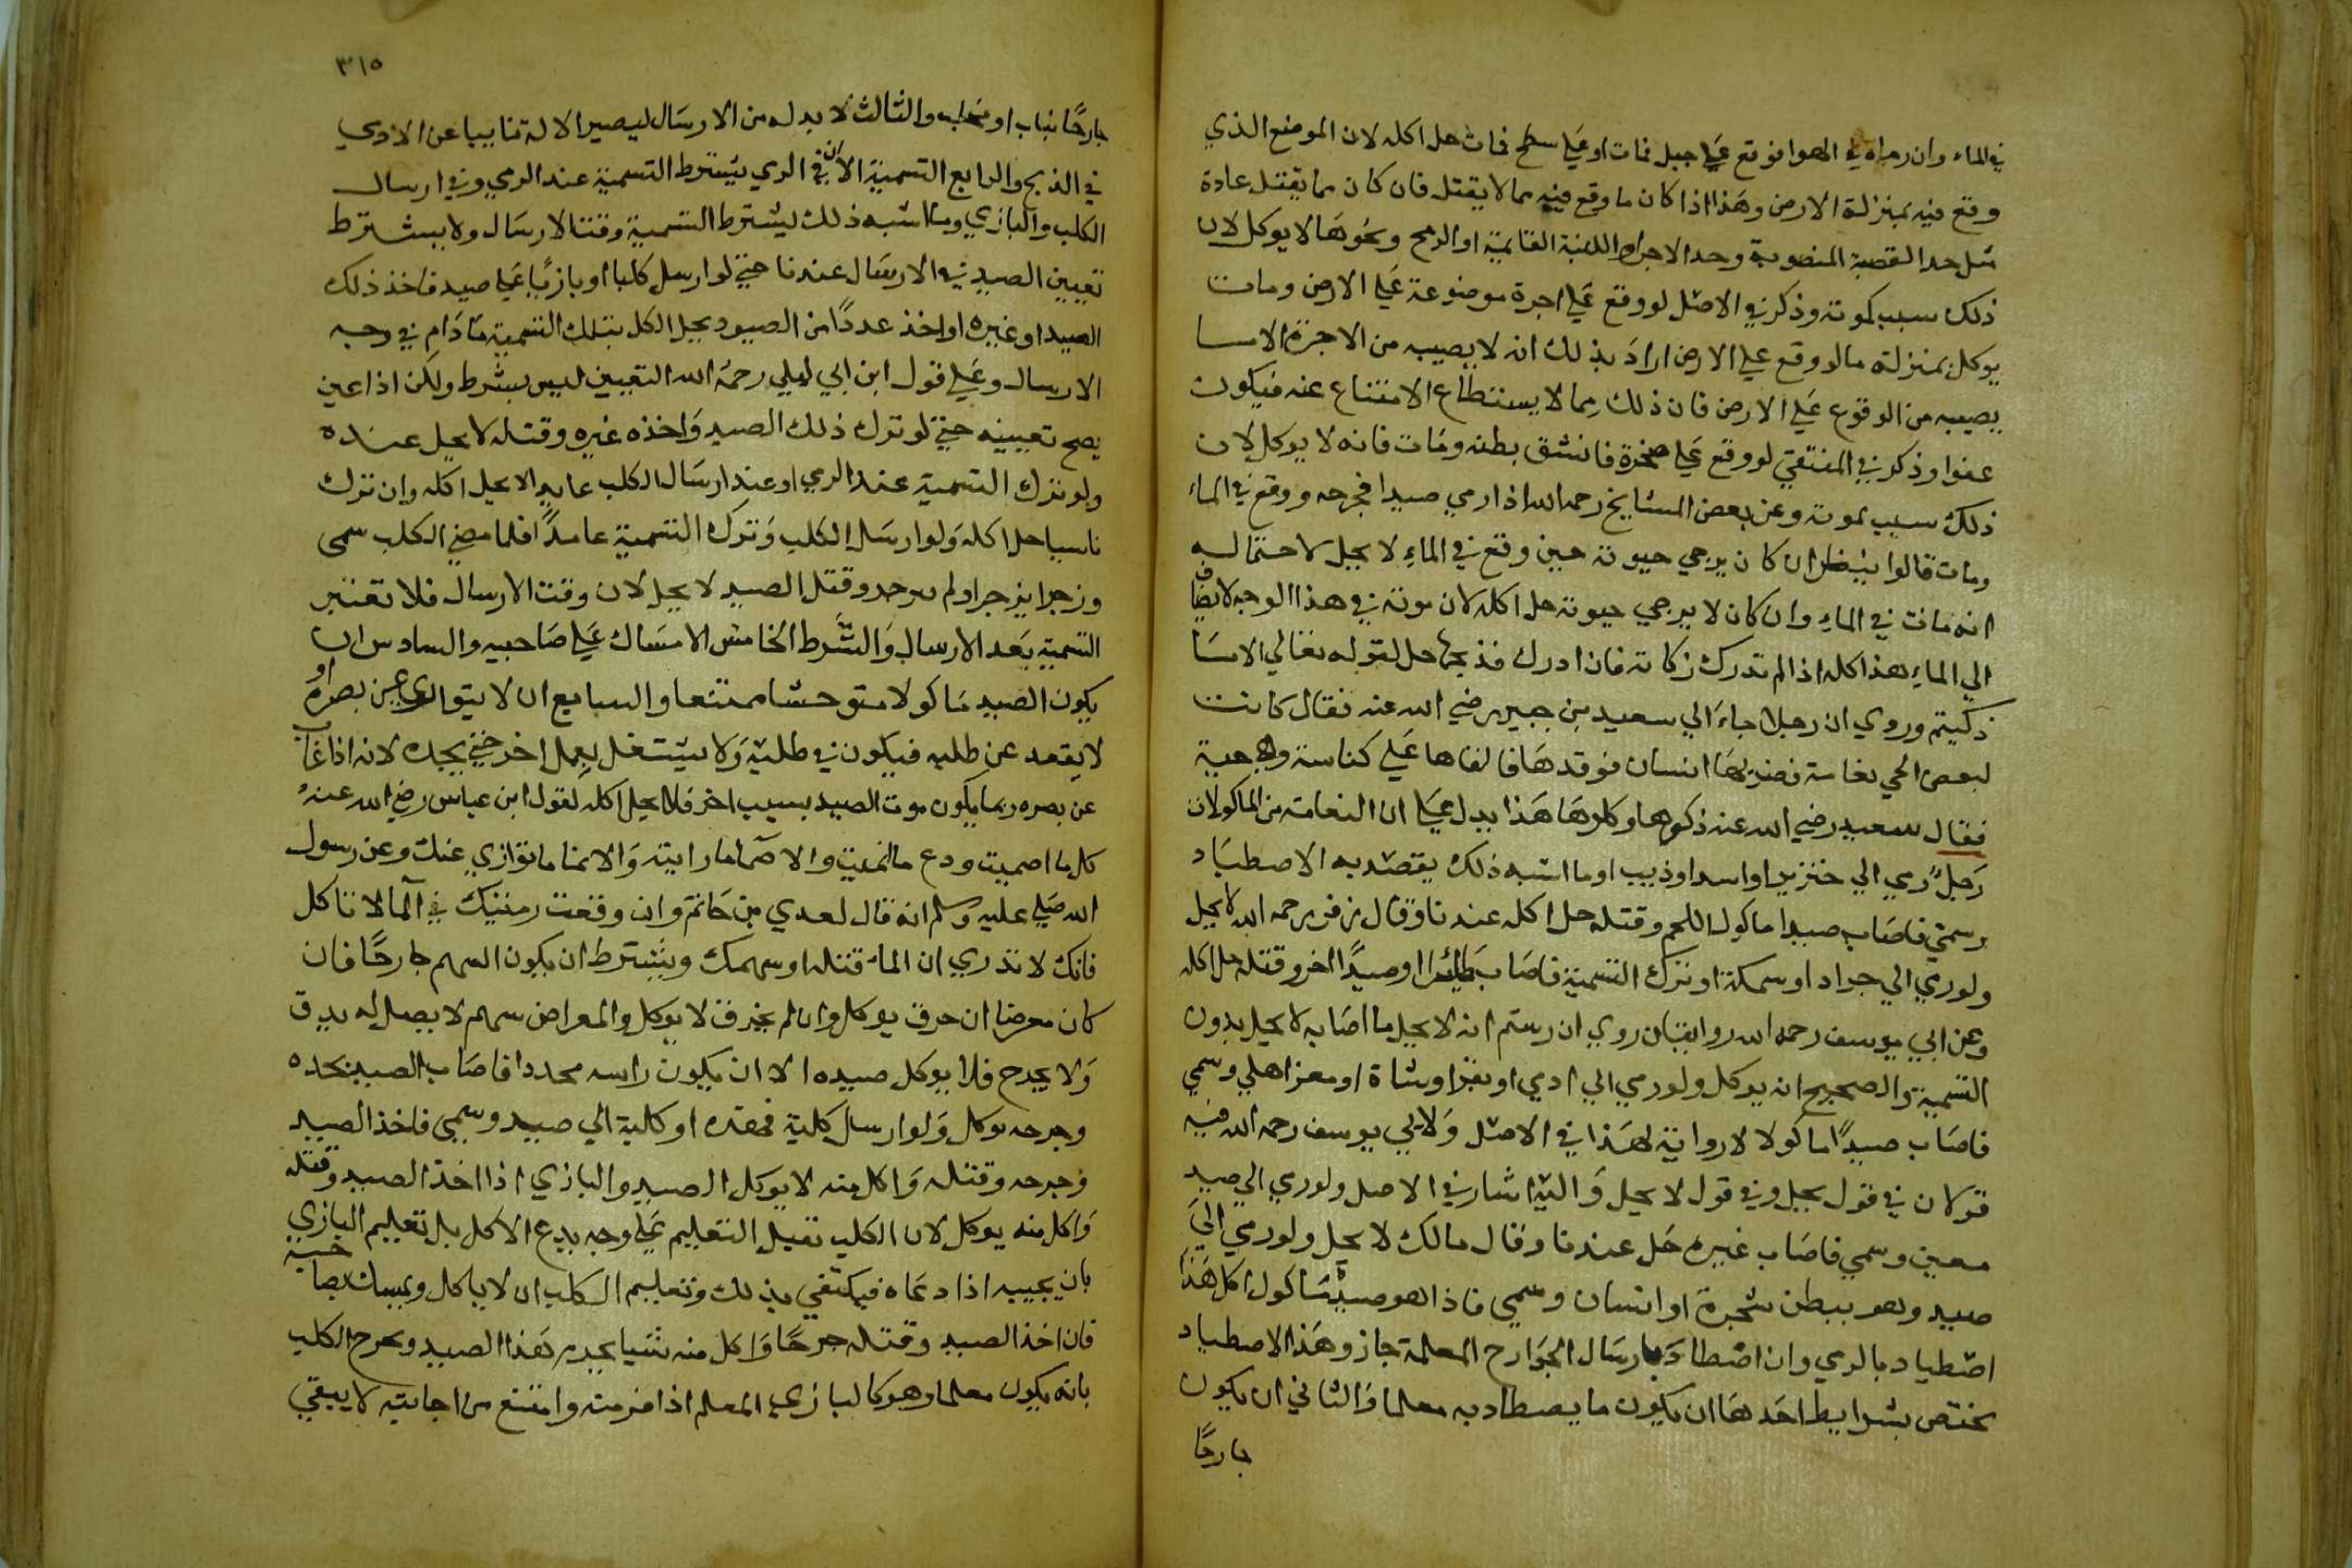 في الماء وان رماه في الهوا فوقع علي جبل فمات او علي سطح فمات حل اكله لان الموضع الذي
وقع فيه بمنزلة الارض وهذا اذا كان ما وقع فيه مما لا يقتل فان كان مما يقتل عادة
مثل حد القصبة المنصوبة وحد الاجر واللبنة القائمة او الرمح ونحوها لا يوكل لان
ذلك سبب لموته وذكر في الاصل لو وقع علي اجرة موضوعة علي الارض ومات
يوكل بمنزلة ما لو وقع علي الارض اراد بذلك انه لا يصيبه من الاجرة الا ما
يصيبه من الوقوع علي الارض فان ذلك مما لا يستطاع الامتناع عنه فيكون
عفوا وذكر في المنتقي لو وقع علي صخرة فانشق بطنه ومات فانه لا يوكل لان
ذلك سبب لموته وعن بعض المشايخ رحمه الله اذا رمي صيدا فجرحه ووقع في الماء
ومات قالوا ينظر ان كان يرجي حيوته حين وقع في الماء لا يحل لاحتمال
انه مات في الماء وان كان لا يرجي حيوته حل اكله لان موته في هذا الوجه لا يضاف
الي الماء هذا كله اذا لم تدرك زكاته فان ادرك فذبحها حل لقوله تعالي الا ما
ذكيتم وروي ان رجلا جاء الي سعيد بن جبير رضي الله عنه فقال كانت
لبعض الحي نعامة فضربها انسان فوقدها فالقاها علي كناسة وهي حية
فقال سعيد رضي الله عنه ذكوها وكلوها هذا يدل علي ان النعامة من الماكولات
رجل رمي الي خنزير او اسد او ذيب او ما اشبه ذلك يقصد به الاصطياد
وسمي فاصاب صيدا ماكول اللحم وقتله حل اكله عندنا وقال زفر رحمه الله لا يحل
ولو رمي الي جراد او سمكة او ترك التسمية فاصاب طائرا او صيدا اخر وقتله حل اكله
وعن ابي يوسف رحمه الله روايتان روي ابن رستم انه لا يحل ما اصابه لا يحل بدون
التسمية والصحيح انه يوكل ولو رمي الي ادمي او بقر او شاة او معز اهلي وسمي
فاصاب صيدا ماكولا لا رواية لهذا في الاصل ولابي يوسف رحمه الله فيه
قولان في قول يحل وفي قول لا يحل واليه اشار في الاصل ولو رمي الي صيد
معين وسمي فاصاب غيره حل عندنا وقال مالك لا يحل ولو رمي الي
صيد وهو يظن شجرة او انسان وسمي فاذا هو صيد ماكول اكل هذا
اصطياد بالرمي وان اصطاد بارسال الجوارح المعلمة جاز وهذا الاصطياد
يختص بشرايط احدها ان يكون ما يصطاد به معلما والثاني ان يكون
جارحا
٣١٥
جارحا بناب او مخلب والثالث لا بد له من الارسال ليصير الالة نايبا عن الادمي
في الذبح والرابع التسمية الا ان في الرمي يشترط التسمية عند الرمي وفي ارسال
الكلب والبازي وما اشبه ذلك يشترط التسمية وقت الارسال ولا يشترط
تعيين الصيد في الارسال عندنا حتي لو ارسل كلبا او بازيا علي صيد فاخذ ذلك
الصيد او غيره او اخذ عددا من الصيود يحل الكل بتلك التسمية ما دام في وجه
الارسال وعلي قول ابن ابي ليلي رحمه الله التعيين ليس بشرط ولكن اذا عين
يصح تعيينه حتي لو ترك ذلك الصيد واخذه غيره وقتله لا يحل عنده
ولو ترك التسمية عند الرمي او عند ارسال الكلب عامدا لا يحل اكله وان ترك
ناسيا حل اكله ولو ارسل الكلب وترك التسمية عامدا فلما مضي الكلب سمي
وزجر انزجر او لم يزجر وقتل الصيد لا يحل لان وقت الارسال فلا تعتبر
التسمية بعد الارسال والشرط الخامس الامساك علي صاحبه والسادس ان
يكون الصيد ماكولا متوحشا ممتنعا والسابع ان لا يتواري عن بصره او
لا يقعد عن طلبه فيكون في طلبه ولا يشتغل بعمل اخر حتي يجده لانه اذا غاب
عن بصره ربما يكون موت الصيد بسبب اخر فلا يحل اكله لقول ابن عباس رضي الله عنه
كل ما اصميت ودع ما انميت والاصما ما رايته والانما ما توازي عنك وعن رسول
الله صلي عليه وسلم انه قال لعدي بن حاتم وان وقعت رميتك في الما لا تاكل
فانك لا تدري ان الماء قتله او سهمك ويشترط ان يكون السهم جارحا فان
كان معرضا ان حرق يوكل وان لم يخرق لا يوكل والمعراض سهم لا نصل له يدق
ولا يجرح فلا يوكل صيده الا ان يكون راسه محددا فاصاب الصيد بحده
وجرحه يوكل ولو ارسل كلبه فهده او كلبه الي صيد وسمي فاخذ الصيد
فجرحه وقتله واكل منه لا يوكل الصيد والبازي اذا اخذ الصيد وقتله
واكل منه يوكل لان الكلب تقبل التعليم علي وجه يدع الاكل بل تعليم البازي
بان يجيبه اذا دعاه فيكتفي بذلك وتعليم الكلب ان لا ياكل ويمسك لصاحبه
فان اخذ الصيد وقتله جرحا واكل منه شيا يحرم هذا الصيد ويخرج الكلب
بانه يكون معلما وهو كالبازي المعلم اذا فر منه وامتنع من اجابته لا يبقي